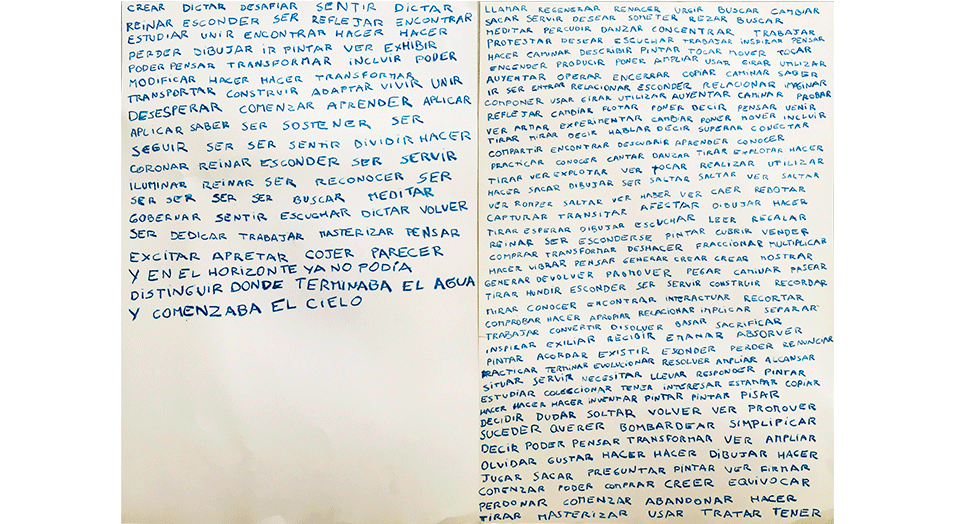 CREAR DICTAR DESAFIAR SENTIR DICTAR
REINAR ESCONDER SER REFLEJAR ENCONTRAR
ESTUDIAR UNIR ENCONTRAR HACER HACER
PERDER DIBUJAR IR PINTAR VER EXHIBIR
PODER PENSAR TRANSFORMAR INCLUIR PODER
MODIFICAR HACER HACER TRANSFORMAR
TRANSPORTAR CONSTRUIR ADAPTAR VIVIR UNIR
DESESPERAR COMENZAR APRENDER APLICAR
APLICAR SABER SER SOSTENER SER
SEGUIR SER SER SENTIR DIVIDIR HACER
CORONAR REINAR ESCONDER SER SERVIR
ILUMINAR REINAR SER RECONOCER SER
SER SER SER SER BUSCAR MEDITAR
GOBERNAR SENTIR ESCUCHAR DICTAR VOLVER
SER DEDICAR TRABAJAR MASTERIZAR PENSAR
EXCITAR APRETAR COJER PARECER
Y EN EL HORIZONTE YA NO PODÍA
DISTINGUIR DONDE TERMINABA EL AGUA
Y COMENZABA EL CIELO
LLAMAR REGENERAR RENACER URGIR BUSCAR CAMBIAR
SACAR SERVIR DESEAR SOMETER REZAR BUSCAR
MEDITAR PERCUDIR DANZAR CONCENTRAR TRABAJAR
PROTESTAR DESEAR ESCUCHAR TRABAJAR INSPIRAR PENSAR
HACER CAMINAR DESCRIBIR PINTAR TOCAR MOVER TOCAR
ENCENDER PRODUCIR PONER AMPLIAR USAR GIRAR UTILIZAR
AUYENTAR OPERAR ENCERRAR COPIAR CAMINAR SABER
IR SER ENTRAR RELACIONAR ESCONDER RELACIONAR IMAGINAR
COMPONER USAR GIRAR UTILIZAR AUYENTAR CAMINAR PROBAR
REFLEJAR CAMBIAR FLOTAR PONER DECIR PENSAR VENIR
VER ARMAR EXPERIMENTAR CAMBIAR PONER MOVER INCLUIR
TIRAR MIRAR DECIR HABLAR DECIR SUPERAR CONECTAR
COMPARTIR ENCONTRAR DESCUBRIR APRENDER CONOCER
PRACTICAR CONOCER CANTAR DANZAR TIRAR EXPLOTAR HACER
TIRAR VER EXPLOTAR VER TOCAR REALIZAR UTILIZAR
HACER SACAR DIBUJAR SER SALTAR SALTAR VER SALTAR
VER ROMPER SALTAR VER HABER VER CAER REBOTAR
CAPTURAR TRANSITAR AFECTAR DIBUJAR HACER
TIRAR ESPERAR DIBUJAR ESCUCHAR LEER REGALAR
REINAR SER ESCONDERSE PINTAR CUBRIR VENDER
COMPRAR TRANSFORMAR DESHACER FRACCIONAR MULTIPLICAR
HACER VIBRAR PENSAR GENERAR CREAR CREAR MOSTRAR
GENERAR DEVOLVER PROMOVER PEGAR CAMINAR PASEAR
TIRAR HUNDIR ESCONDER SER SERVIR CONSTRUIR RECORDAR
MIRAR CONOCER ENCONTRAR INTERACTUAR RECORTAR
COMPROBAR HACER APROPIAR RELACIONAR IMPLICAR SEPARAR
TRABAJAR CONVERTIR DISOLVER BASAR SACRIFICAR
INSPIRAR EXILIAR RECIBIR EMANAR ABSORVER
PINTAR ACORDAR EXISTIR ESCONDER PERDER RENUNCIAR
PRACTICAR TERMINAR EVOLUCIONAR RESOLVER AMPLIAR ALCANSAR
SITUAR SERVIR NECESITAR LLEVAR RESPONDER PINTAR
ESTUDIAR COLECCIONAR TENER INTERESAR ESTAMPAR COPIAR
HACER HACER HACER INVENTAR PINTAR PINTAR PISAR
DECIDIR DUDAR SOLTAR VOLVER VER PROMOVER
SUCEDER QUERER BOMBARDEAR SIMPLIFICAR
DECIR PODER PENSAR TRANSFORMAR VER AMPLIAR
OLVIDAR GUSTAR HACER HACER DIBUJAR HACER
JUGAR SACAR PREGUNTAR PINTAR VER FIRMAR
COMENZAR PODER COMPRAR CREER EQUIVOCAR
PERDONAR COMENZAR ABANDONAR HACER
TIRAR MASTERIZAR USAR TRATAR TENER